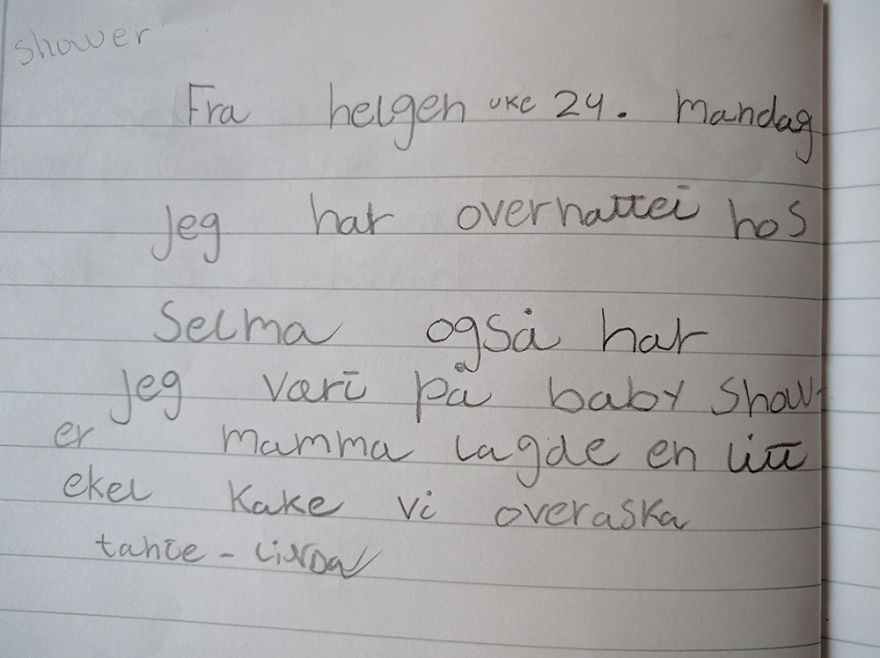 shower
Fra helgen uke 24. mandag
jeg har overnattet hos
Selma også har
jeg vært på baby show-
er mamma lagde en litt
ekel kake vi overaska
tante - Linda